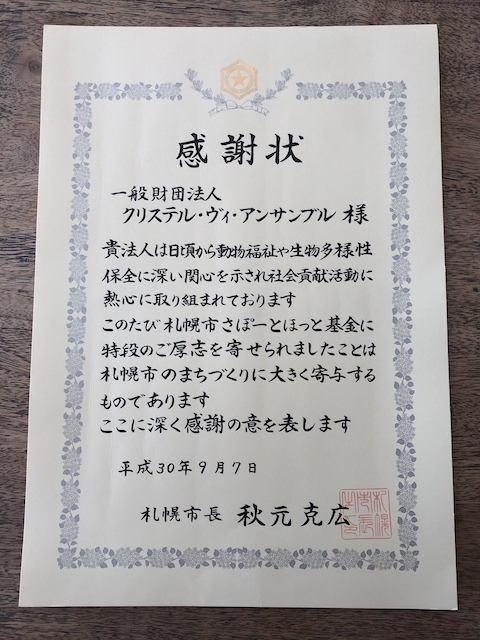 感謝状
一般財団法人
クリステル・ヴィ・アンサンブル 様
貴法人は日頃から動物福祉や生物多様性
保全に深い関心を示され社会貢献活動に
熱心に取り組まれております
このたび札幌市さぽーとほっと基金に
特段のご厚志を寄せられましたことは
札幌市のまちづくりに大きく寄与する
ものであります
ここに深く感謝の意を表します
平成30年9月7日
札幌市長 秋元克広